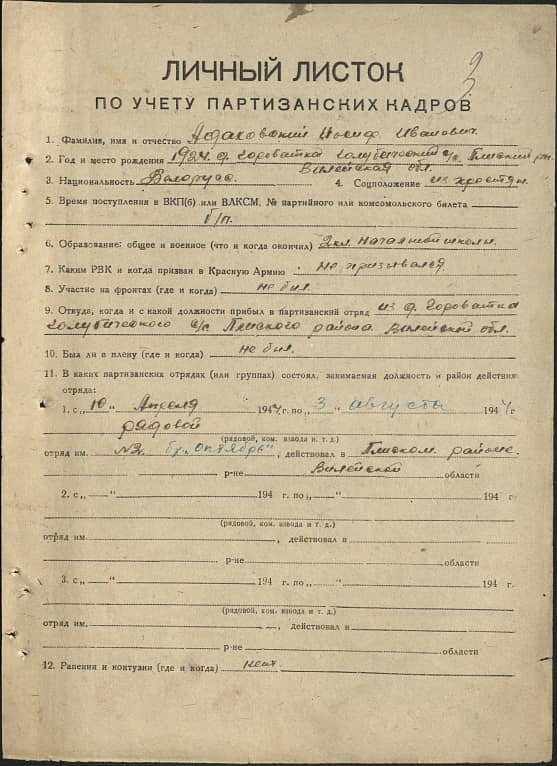 3
ЛИЧНЫЙ ЛИСТОК
ПО УЧЕТУ ПАРТИЗАНСКИХ КАДРОВ
1. Фамилия, имя и отчество Адаховский Иосиф Иванович
2. Год и место рождения 1924 д. Горователка Голубический с/с. Плиский рн.
Вилейская обл.
3. Национальность Белорус. 4. Соцположение из крестьян.
5. Время поступления в ВКП(б) или ВЛКСМ, № партийного или комсомольского билета
б/п.
6. Образование: общее и военное (что и когда окончил) 2 кл. началной школы.
7. Каким РВК и когда призван в Красную Армию не призывался.
8. Участие на фронтах (где и когда) не был.
9. Откуда, когда и с какой должности прибыл в партизанский отряд из д.
Голубического с/с Плиского района Вилейской обл.
10. Был ли в плену (где и когда) не был.
11. В каких партизанских отрядах (или группах) состоял, занимаемая должность и район действия
отряда:
1. с „10“ Апреля 1944 г. по „3“ августа 1944 г
рядовой
(рядовой, ком. взвода и т. д.)
отряд им. №2. бр. „Октябрь“, действовал в Плиском районе.
р-не Вилейской области
2. с „ “ 194 г. по „ “ 194 г
(рядовой, ком. взвода и т. д.)
отряд им. , действовал в
р-не области
3. с „ “ 194 г. по „ “ 194 г.
(рядовой, ком. взвода и т. д.)
отряд им. , действовал в
р-не области
12. Ранения и контузии (где и когда) нет.